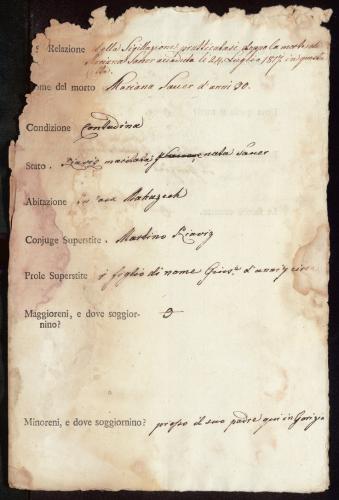 Relazione della Sigillazione pratticatasi doppo la morte di
Mariana Sauer accaduta le 24 Luglio 1817 in questa
ome del morto Mariana Sauer d'anni 30.
Condizione Contadina
Stato. maritata nata Sauer
Abitazione in
Conjuge Superstite. Martino
Prole Superstite 1 figlio di nome d'anni
Maggioreni, e dove soggior-
nino?
Minoreni, e dove soggiornino? presso il suo padre qui in Gorizia